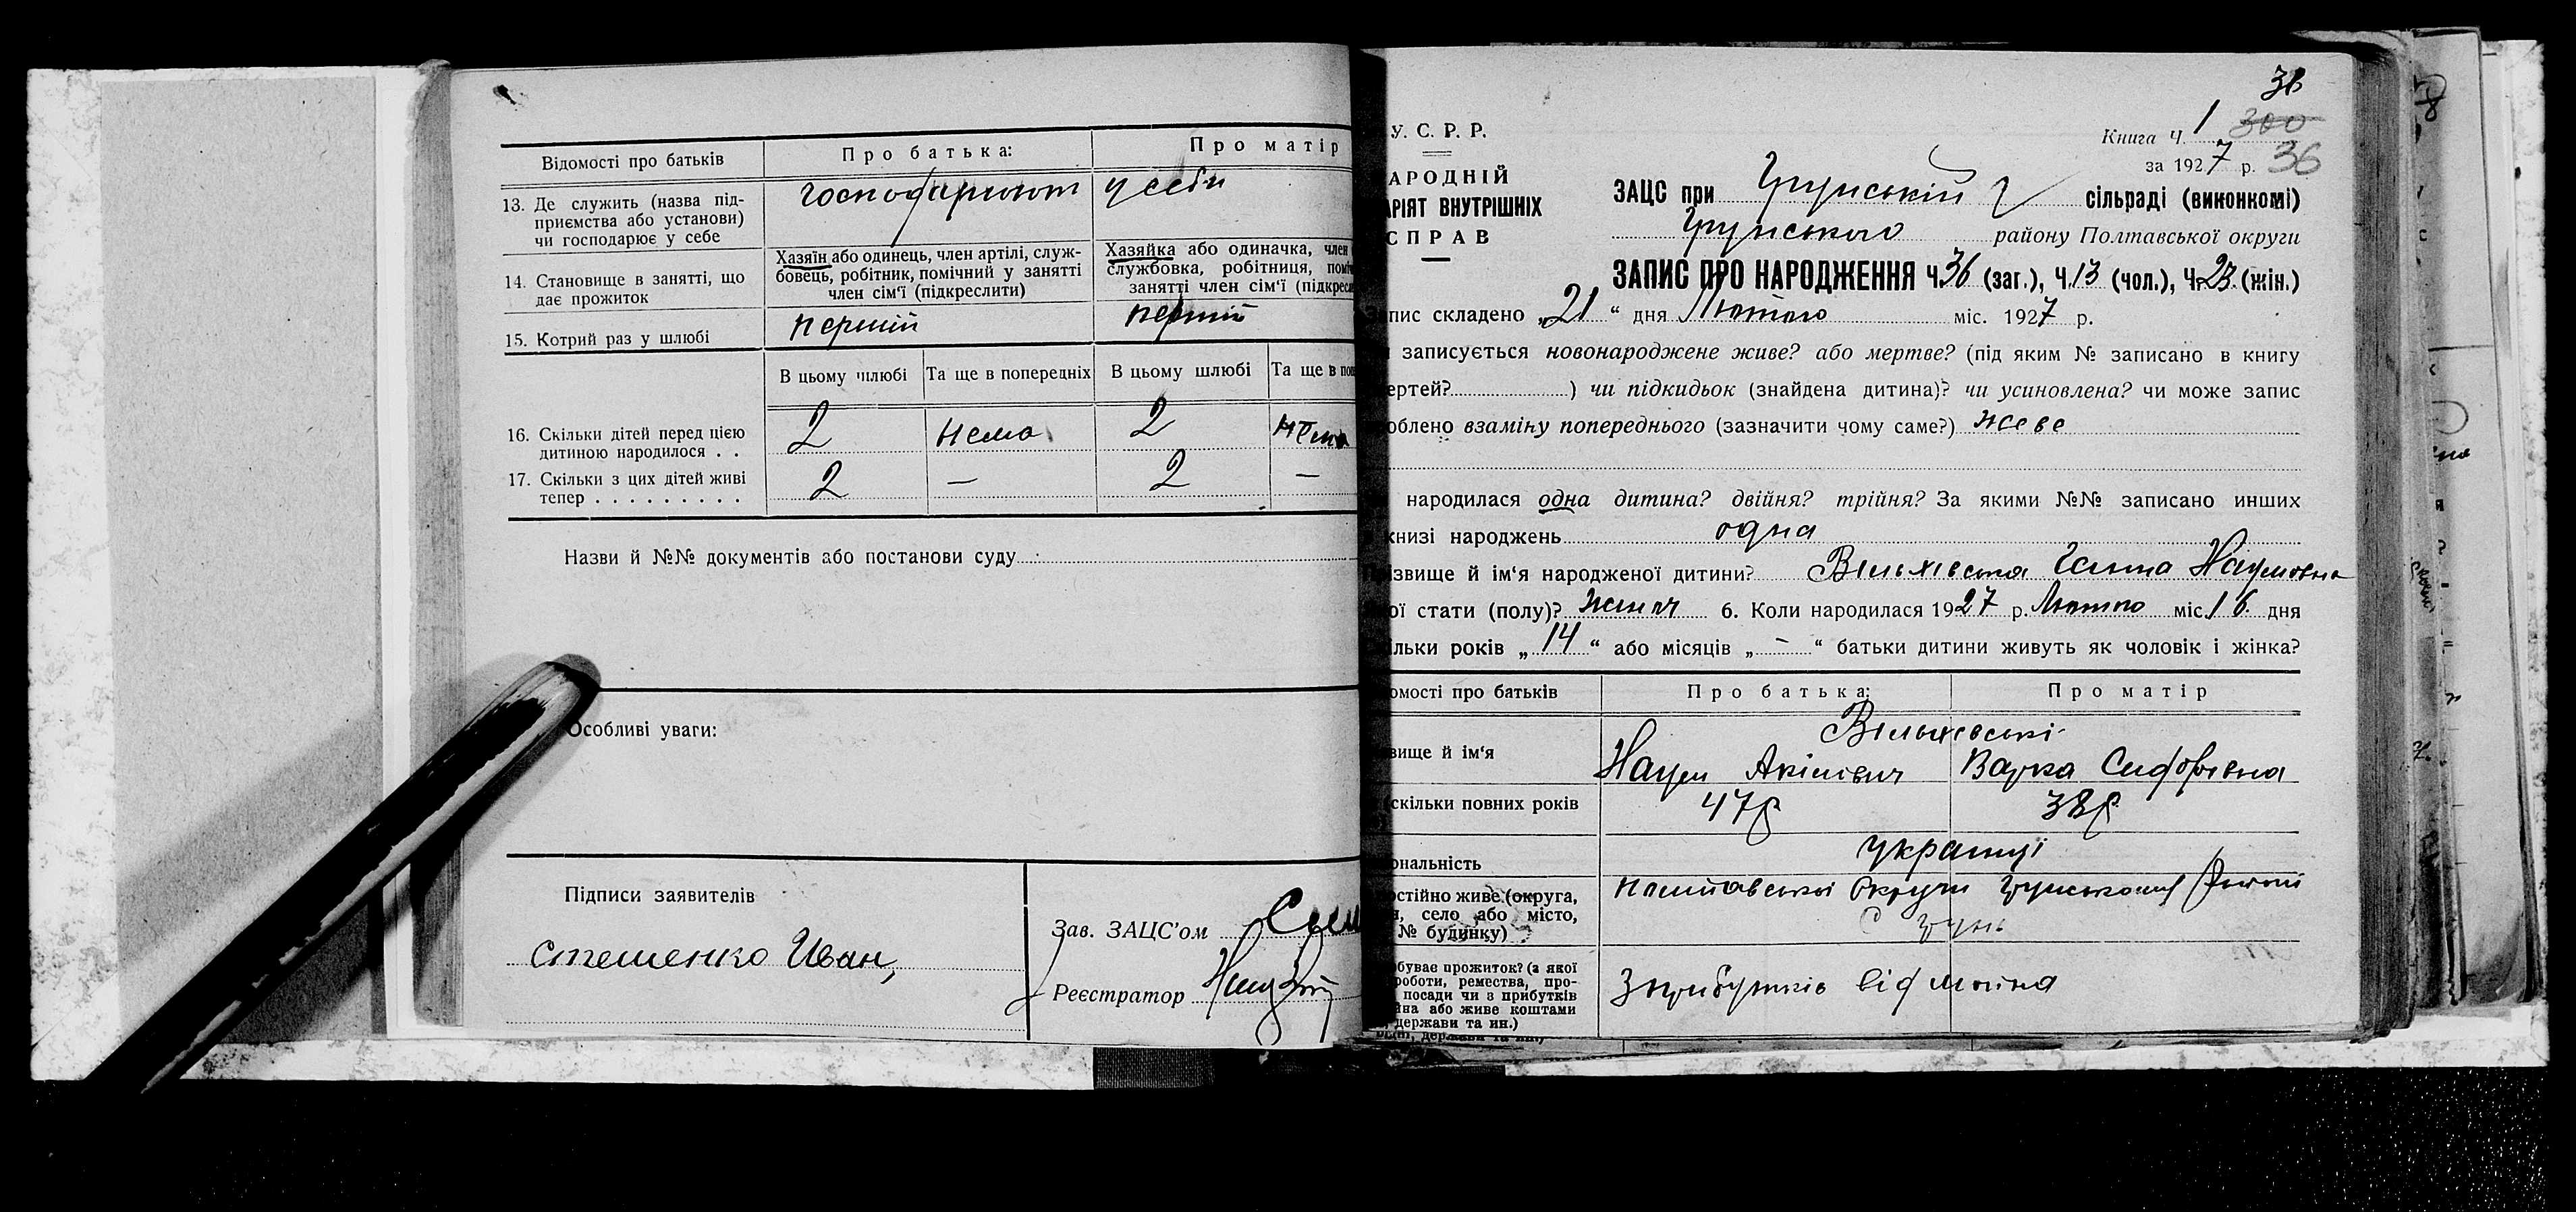 Відомості про батьків
Про батька:
Про матір
13. Де служить (назва під-
приємства або установи)
чи господарює у себе
господарюют у себи
14. Становище в занятті, що
дає прожиток
Хазяїн або одинець, член артілі, служ-
бовець, робітник, помічний у занятті
член сім'ї (підкреслити)
Хазяйка або одиначка, член
службовка, робітниця,
занятті член сім'ї
15. Котрий раз у шлюбі
перший
перший
В цьому шлюбі
Та ще в попередніх
В цьому шлюбі
Та ще в
16. Скільки дітей перед цією
дитиною народилося . .
2
нема
2
нема
17. Скільки з цих дітей живі
тепер . . . . . . . . .
2
—
2
—
Назви й №№ документів або постанови суду
Особливі уваги:
Підписи заявителів
Стешенко Иван,
Зав. ЗАЦС'ом
Реєстратор
36
У. С. Р. Р.
Книга Ч. 1 300
за 1927 р. 36
АРОДНІЙ
АРІЯТ ВНУТРІШНІХ
СПРАВ
ЗАЦС при Грунській сільраді (виконкомі)
Грунського району Полтавської округи
ЗАПИС ПРО НАРОДЖЕННЯ Ч. 36 (заг.), Ч. 13 (чол.), Ч. 23 (жін.)
пис складено „21“ дня Лютого міс. 1927 р.
записується новонароджене живе? або мертве? (під яким № записано в книгу
ертей? ) чи підкидьок (знайдена дитина)? чи усиновлена? чи може запис
облено взаміну попереднього (зазначити чому саме?) живе
народилася одна дитина? двійня? трійня? За якими №№ записано инших
книзі народжень одна
ізвище й ім'я народженої дитини? Вільхівська Ганна Наумовна
ої стати (полу)? жиноч 6. Коли народилася 1927 р. Лютого міс. 16 дня
ільки років „14“ або місяців „–“ батьки дитини живуть як чоловік і жінка?
омості про батьків
Про батька:
Про матір
вище й ім'я
Вільхівські
Наум Акімович
Варка Сидорівна
скільки повних років
47 р
38 р
ональність
українці
остійно живе (округа,
н, село або місто,
№ будинку)
Полтавської Округи Грунського
с Грунь
буває прожиток? (з якої
роботи, ремества, про-
посади чи з прибутків
йна або живе коштами
держави та ин.)
З прибутків від майна